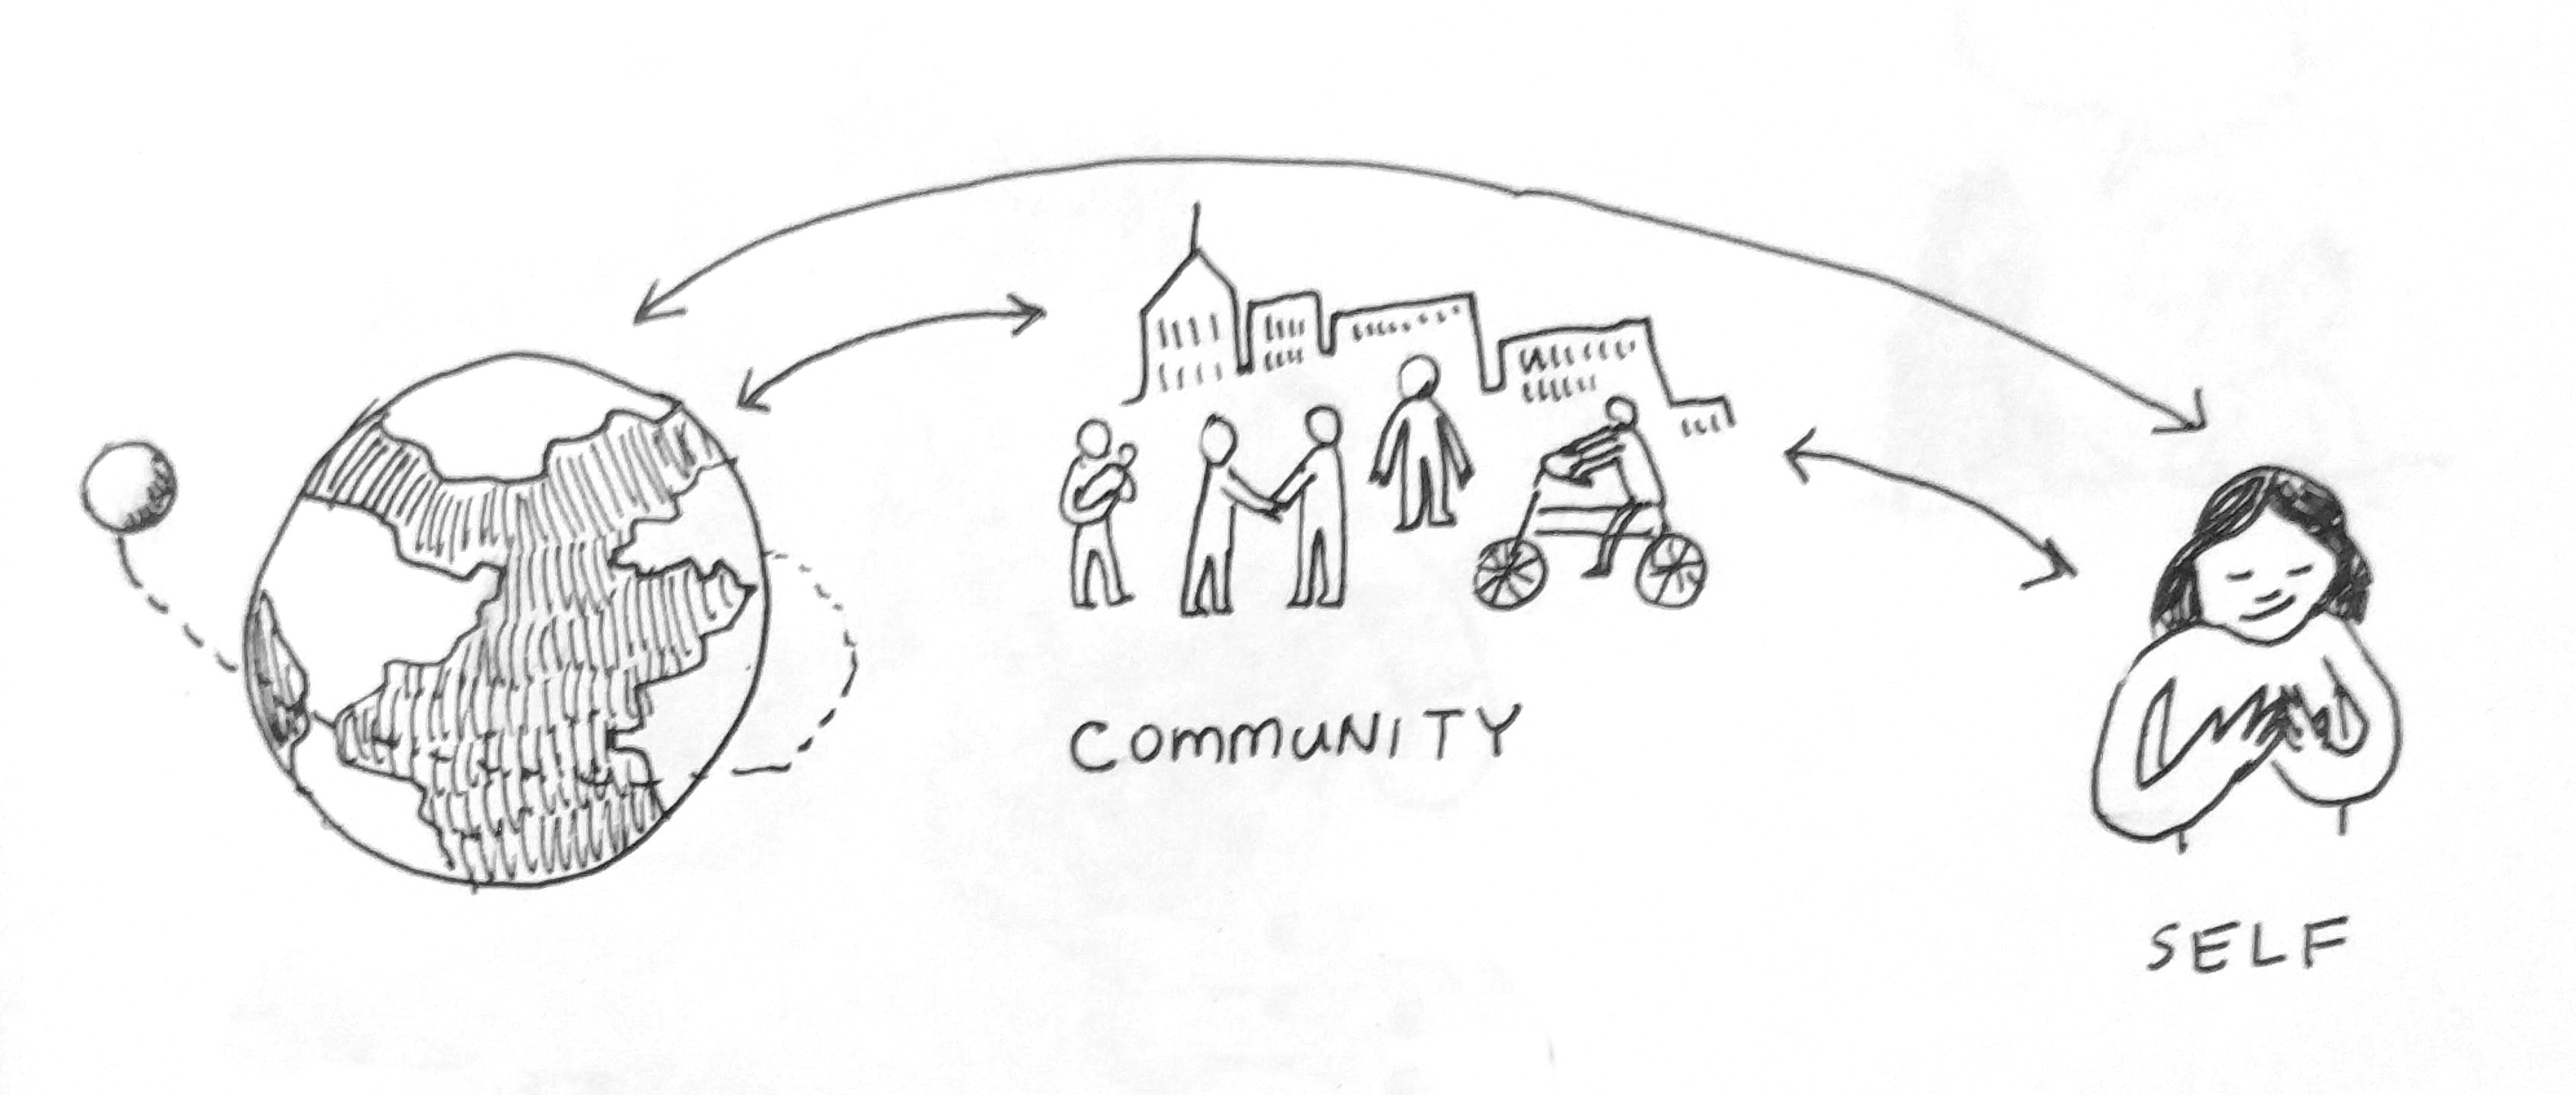 COMMUNITY
SELF